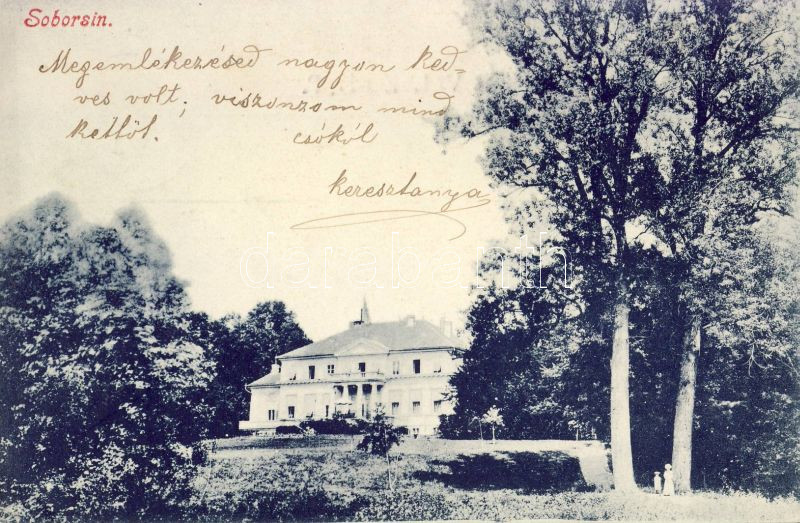 Soborsin.
Megemlékezésed nagyon ked-
ves volt; viszonzom mind
kettőt. csókól
keresztanya
darabanth